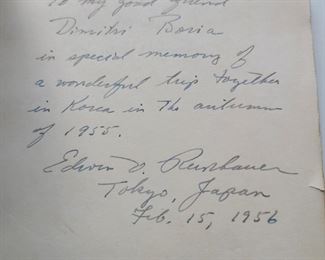 To my good friend
Dimitri Boria
in special memory of
a wonderful trip together
in Korea in the autumn
of 1955.
Edwin O. Reischauer
Tokyo, Japan
Feb. 15, 1956